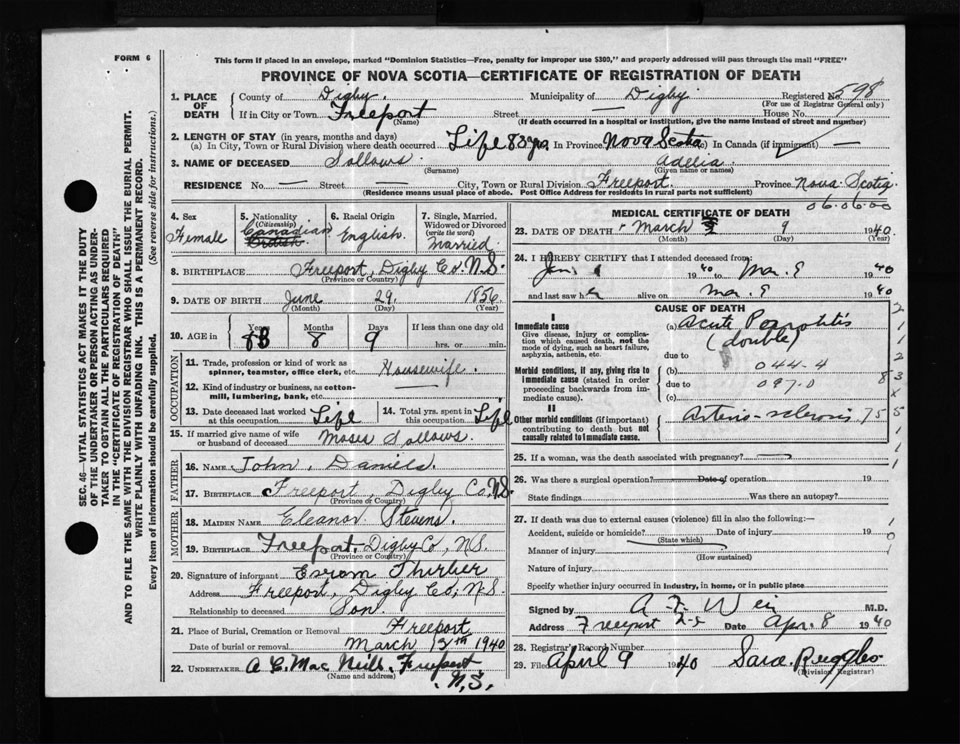 FORM 6
This form if placed in an envelope, marked "Dominion Statistics—Free, penalty for improper use $300," and properly addressed will pass through the mail "FREE"
PROVINCE OF NOVA SCOTIA—CERTIFICATE OF REGISTRATION OF DEATH
SEC. 46—VITAL STATISTICS ACT MAKES IT THE DUTY
OF THE UNDERTAKER OR PERSON ACTING AS UNDER-
TAKER TO OBTAIN ALL THE PARTICULARS REQUIRED
IN THE "CERTIFICATE OF REGISTRATION OF DEATH"
AND TO FILE THE SAME WITH THE DIVISION REGISTRAR WHO SHALL ISSUE THE BURIAL PERMIT.
WRITE PLAINLY WITH UNFADING INK. THIS IS A PERMANENT RECORD.
Every item of information should be carefully supplied. (See reverse side for instructions.)
1. PLACE OF DEATH County of Digby. Municipality of Digby Registered No. 598
(For use of Registrar General only)
If in City or Town Freeport Street — House No.
(Name) (If death occurred in a hospital or institution, give the name instead of street and number)
2. LENGTH OF STAY (in years, months and days)
(a) In City, Town or Rural Division where death occurred Life 83 yrs. In Province Nova Scotia In Canada (if immigrant) —
3. NAME OF DECEASED Sollows. Adelia.
(Surname) (Given name or names)
RESIDENCE No. — Street — City, Town or Rural Division Freeport. Province Nova Scotia.
(Residence means usual place of abode. Post Office Address for residents in rural parts not sufficient)
06.06.00
4. Sex Female
5. Nationality (Citizenship) Canadian British
6. Racial Origin English.
7. Single, Married, Widowed or Divorced (write the word) Married.
8. BIRTHPLACE Freeport, Digby Co. N.S.
(Province or Country)
9. DATE OF BIRTH June 29. 1856
(Month) (Day) (Year)
10. AGE in Years 83 Months 8 Days 9 If less than one day old
hrs. or min.
OCCUPATION
11. Trade, profession or kind of work as spinner, teamster, office clerk, etc. Housewife.
12. Kind of industry or business, as cotton-mill, lumbering, bank, etc.
13. Date deceased last worked at this occupation Life
14. Total yrs. spent in this occupation Life
15. If married give name of wife or husband of deceased Moses Sollows.
FATHER
16. NAME John, Daniels.
17. BIRTHPLACE Freeport, Digby Co. N.S.
(Province or Country)
MOTHER
18. MAIDEN NAME Eleanor Stevens.
19. BIRTHPLACE Freeport, Digby Co, N.S.
(Province or Country)
20. Signature of informant Esrom Thurber
Address Freeport, Digby Co; N.S.
Relationship to deceased Son.
21. Place of Burial, Cremation or Removal Freeport
Date of burial or removal March 12th 1940
22. UNDERTAKER A C. Mac Neill. Freeport. N.S.
(Name and address)
MEDICAL CERTIFICATE OF DEATH
23. DATE OF DEATH March 9 1940
(Month) (Day) (Year)
24. I HEREBY CERTIFY that I attended deceased from:
1940 to Mar. 9 1940
and last saw her alive on Mar. 9 1940
CAUSE OF DEATH
I
Immediate cause
Give disease, injury or complication which caused death, not the mode of dying, such as heart failure, asphyxia, asthenia, etc.
(a) Acute Parotitis (double)
due to
Morbid conditions, if any, giving rise to immediate cause (stated in order proceeding backwards from immediate cause).
(b) 044-4
due to 097.0
(c)
II
Other morbid conditions (if important) contributing to death but not causally related to immediate cause.
Arterio-sclerosis
25. If a woman, was the death associated with pregnancy?
26. Was there a surgical operation? Date of operation 19
State findings Was there an autopsy?
27. If death was due to external causes (violence) fill in also the following:—
Accident, suicide or homicide? Date of injury 19
(State which)
Manner of injury
(How sustained)
Nature of injury
Specify whether injury occurred in industry, in home, or in public place
Signed by M.D.
Address Freeport N.S Date Apr. 8 1940
28. Registrar's Record Number
29. Filed April 9 1940 Sara
(Division Registrar)